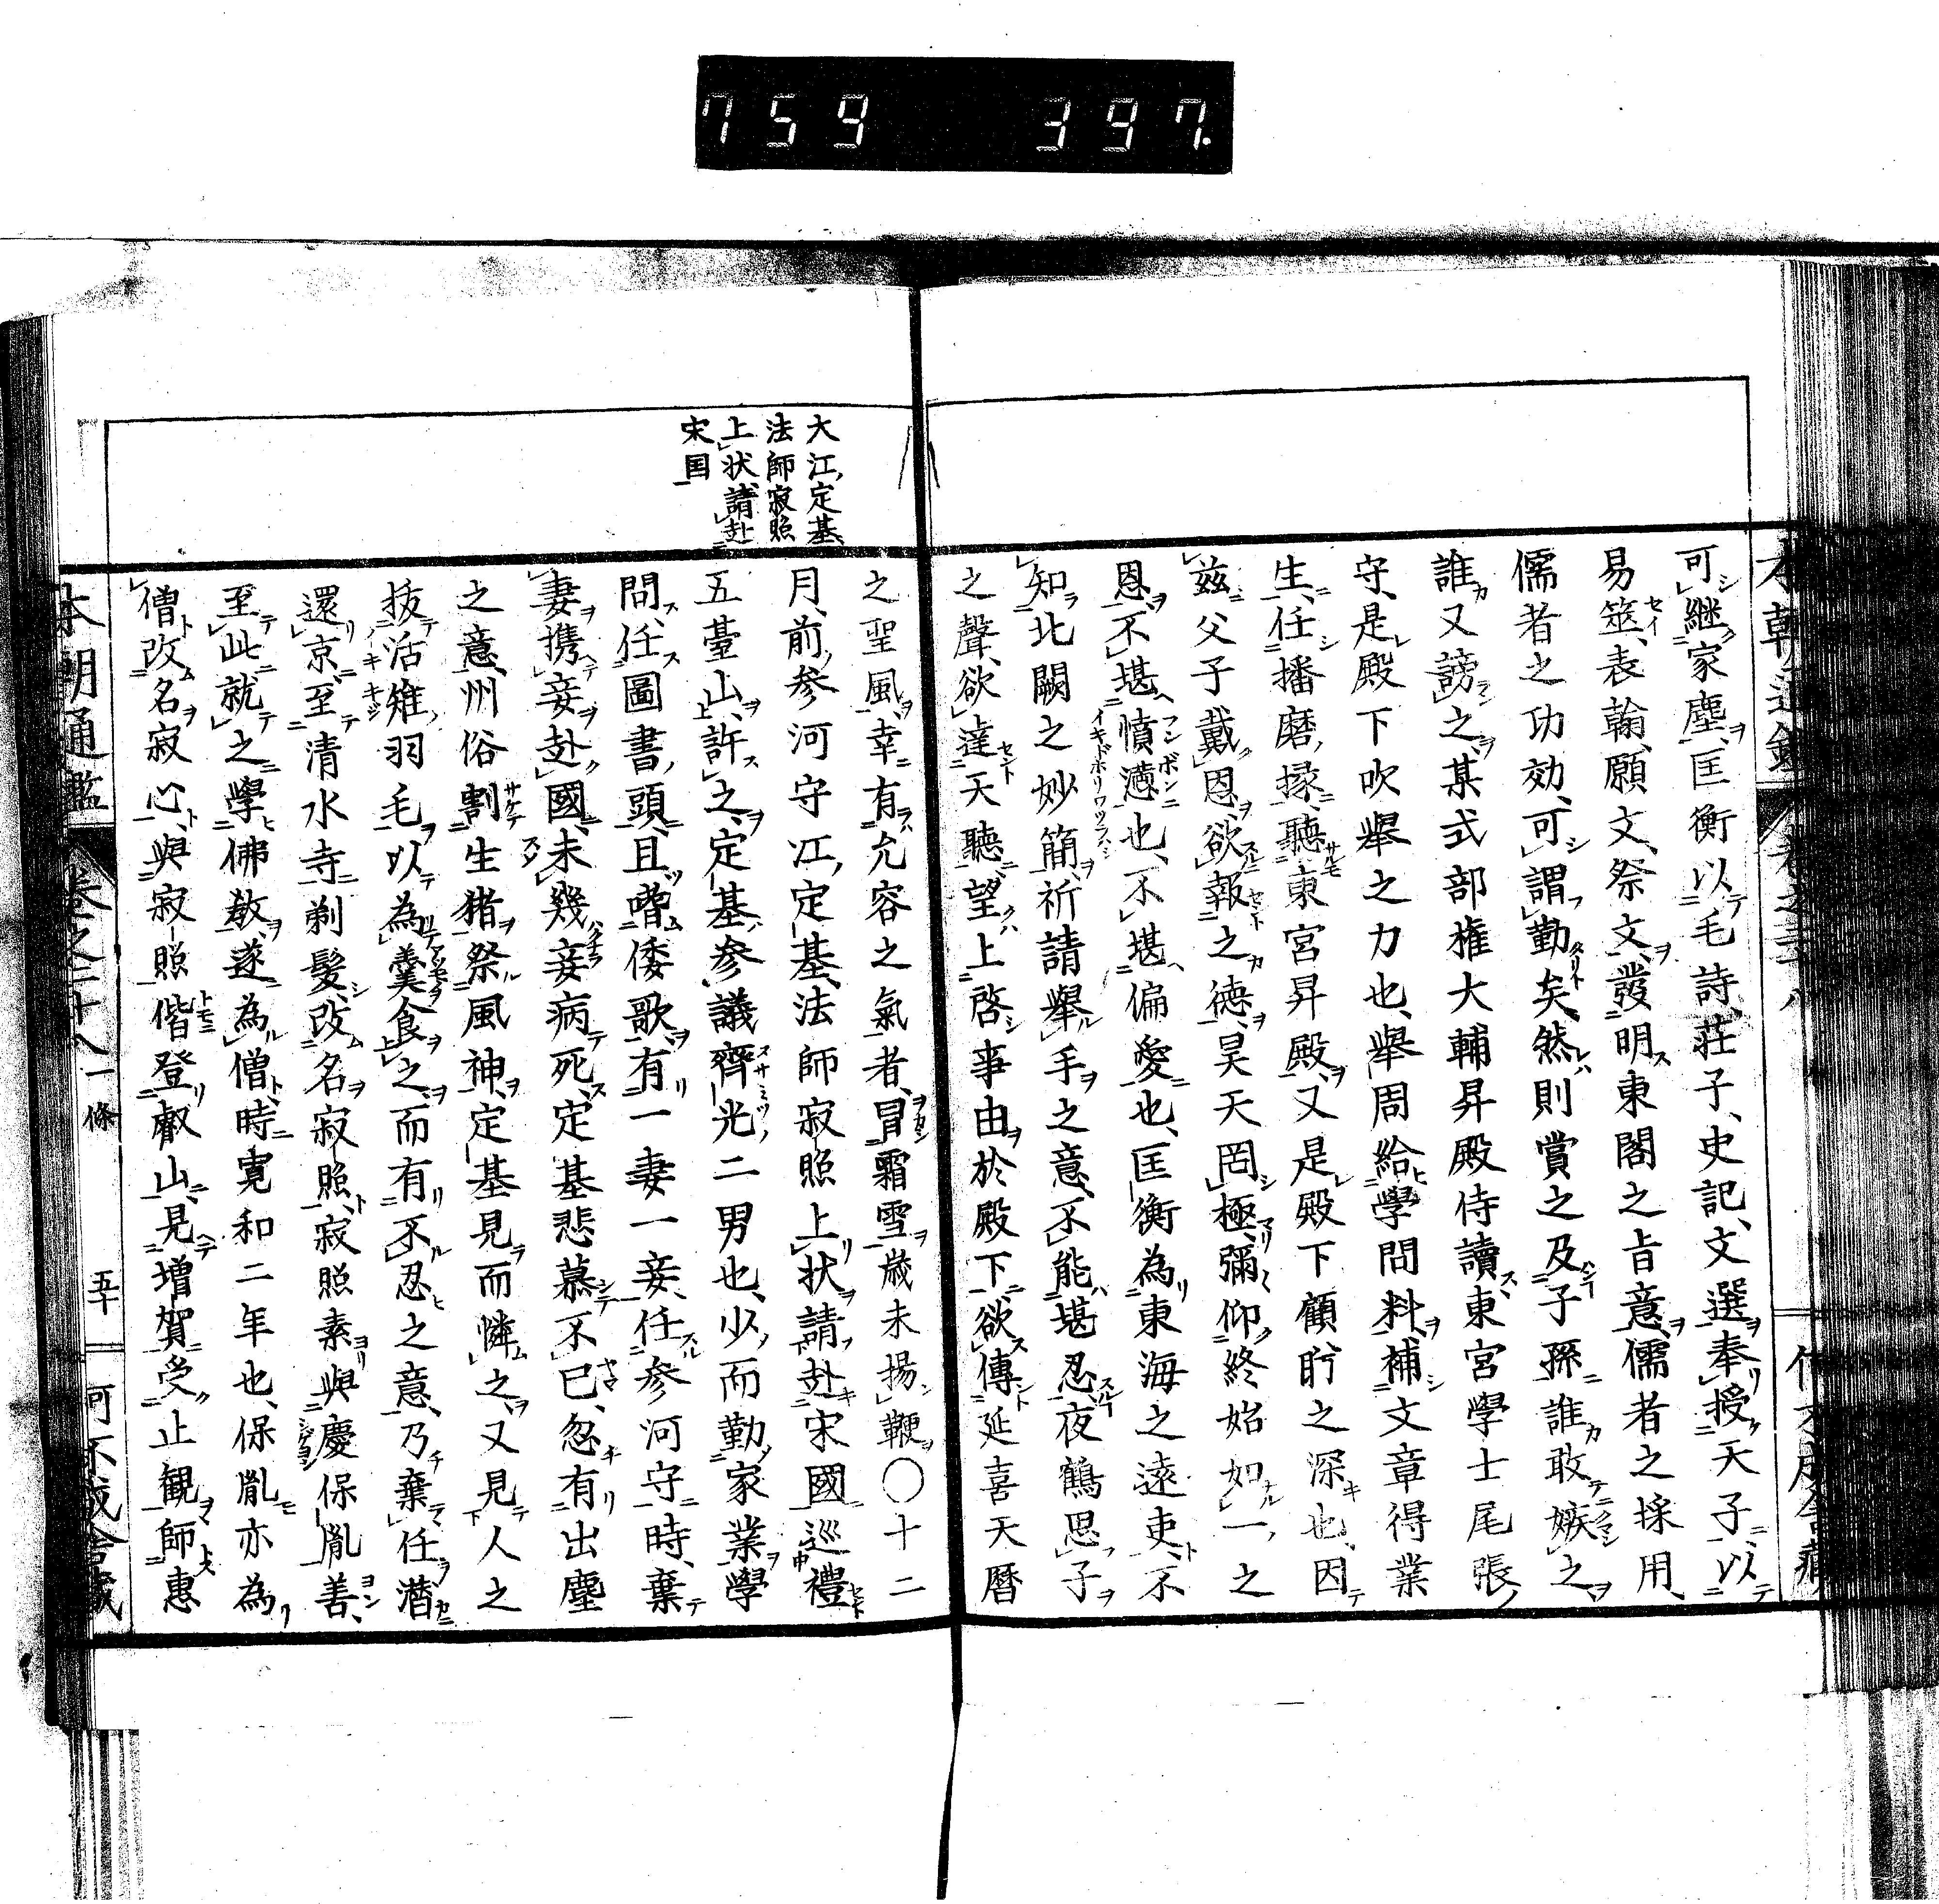 759 397.
可継家塵、匡衡以毛詩、莊子、史記、文選奉授天子、以
易筮、表翰、願文、祭文、發明東閣之旨意、儒者之採用、
儒者之功効、可謂勤矣、然則賞之及子孫、誰敢嫉之、
誰又謗之、某式部権大輔昇殿侍讀、東宮學士尾張
守、是殿下吹舉之力也、舉周給學問料、補文章得業
生、任播磨掾、聽東宮昇殿、又是殿下顧眄之深也、因
茲父子戴恩、欲報之徳、昊天罔極、彌仰終始如一之
恩、不堪憤懣也、不堪偏愛也、匡衡為東海之遠吏、不
知北闕之妙簡、祈請舉手之意、不能堪忍、夜鶴思子
之聲、欲達天聽、望上啓事由於殿下、欲傳延喜天曆
之聖風、幸有允容之氣者、冒霜雪、歳未揚鞭、〇十二
大江定基
法師寂照
上状請赴
宋国
月、前參河守江定基、法師寂照上状、請赴宋國巡禮
五臺山、許之、定基參議齊光二男也、少而勤家業、學
問、任圖書頭、且嗜倭歌、有一妻一妾、任參河守時、棄
妻携妾赴國、未幾妾病死、定基悲慕不已、忽有出塵
之意、州俗割生猪祭風神、定基見而憐之、又見人之
抜活雉羽毛、以為羹食之、而有不忍之意、乃棄任潜
還京、至清水寺剃髮、改名寂照、寂照素與慶保胤善、
至此就之學佛敎、遂為僧、時寛和二年也、保胤亦為
僧、改名寂心、與寂照偕登叡山、見増賀受止観、師惠
本朝通鑑 卷之二十八 一條 五十